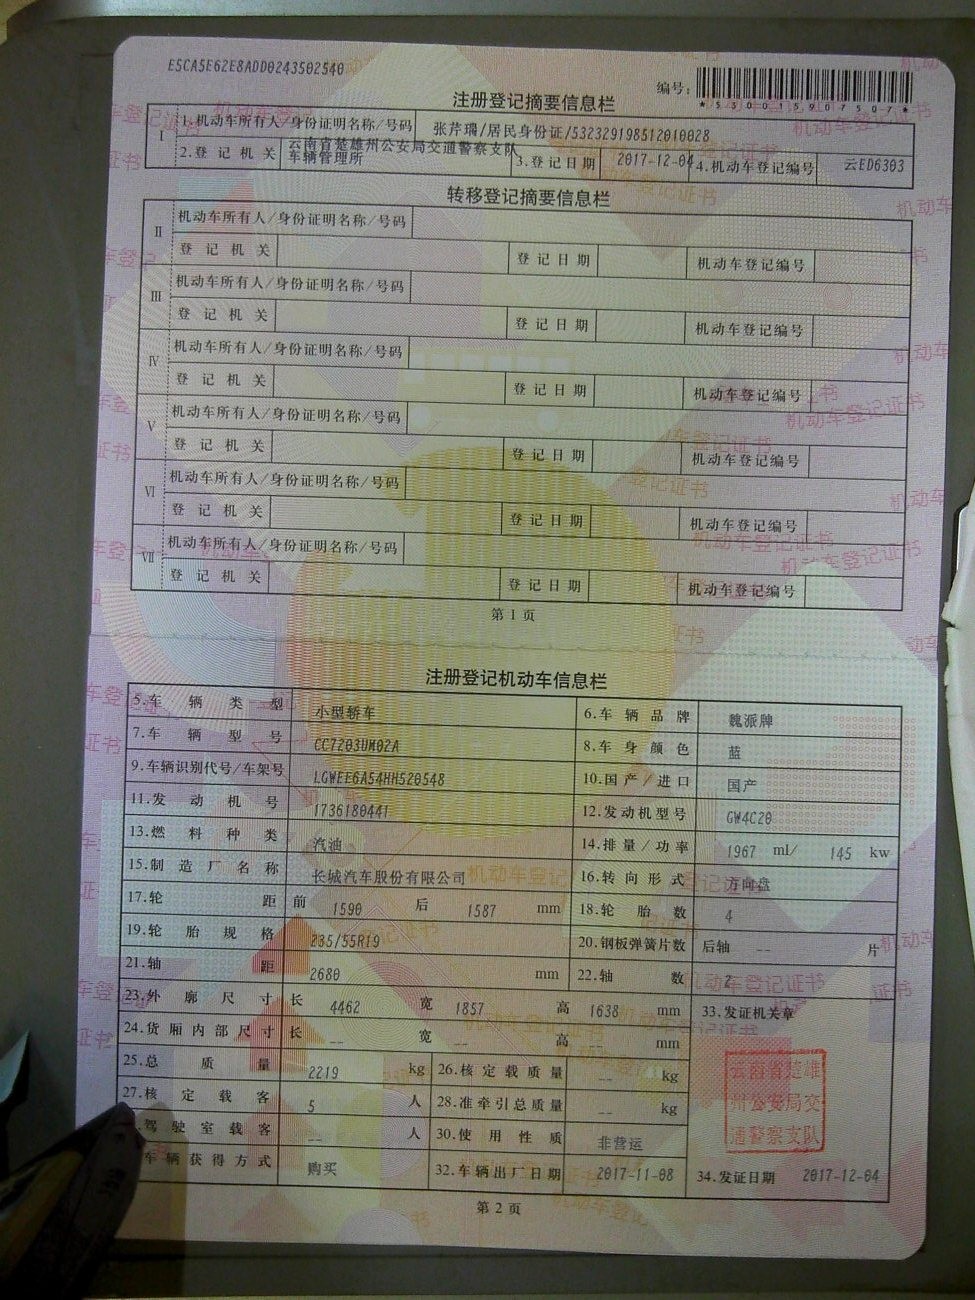 E5CA5E62E8ADD0243502540
编号:
*530015907507*
注册登记摘要信息栏
I 1.机动车所有人/身份证明名称/号码 张芹瑞/居民身份证/532329198512010028
2.登记机关 云南省楚雄州公安局交通警察支队车辆管理所 3.登记日期 2017-12-04 4.机动车登记编号 云ED6303
转移登记摘要信息栏
II 机动车所有人/身份证明名称/号码
登记机关 登记日期 机动车登记编号
III 机动车所有人/身份证明名称/号码
登记机关 登记日期 机动车登记编号
IV 机动车所有人/身份证明名称/号码
登记机关 登记日期 机动车登记编号
V 机动车所有人/身份证明名称/号码
登记机关 登记日期 机动车登记编号
VI 机动车所有人/身份证明名称/号码
登记机关 登记日期 机动车登记编号
VII 机动车所有人/身份证明名称/号码
登记机关 登记日期 机动车登记编号
第1页
注册登记机动车信息栏
5.车辆类型 小型轿车 6.车辆品牌 魏派牌
7.车辆型号 CC7203UM02A 8.车身颜色 蓝
9.车辆识别代号/车架号 LGWEE6A54HH520548 10.国产/进口 国产
11.发动机号 1736180441 12.发动机型号 GW4C20
13.燃料种类 汽油 14.排量/功率 1967 ml/ 145 kw
15.制造厂名称 长城汽车股份有限公司 16.转向形式 方向盘
17.轮距 前 1590 后 1587 mm 18.轮胎数 4
19.轮胎规格 235/55R19 20.钢板弹簧片数 后轴 -- 片
21.轴距 2680 mm 22.轴数 2
23.外廓尺寸 长 4462 宽 1857 高 1638 mm 33.发证机关章
24.货厢内部尺寸 长 -- 宽 -- 高 -- mm
25.总质量 2219 kg 26.核定载质量 -- kg
27.核定载客 5 人 28.准牵引总质量 -- kg
驾驶室载客 -- 人 30.使用性质 非营运
车辆获得方式 购买 32.车辆出厂日期 2017-11-08 34.发证日期 2017-12-04
云南省楚雄
州公安局交
通警察支队
第2页